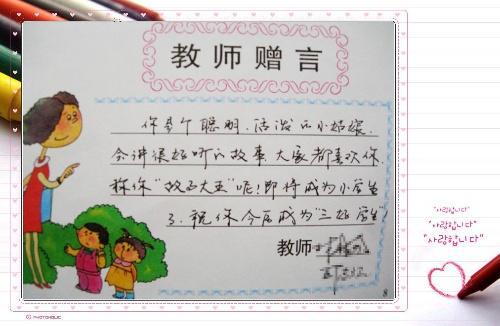 教师赠言
你是个聪明、活泼的小姑娘,
会讲很好听的故事,大家都喜欢你,
称你"故事大王"呢!即将成为小学生
了,祝你今后成为"三好学生"!
教师
8
"사랑합니다"
"사랑합니다"
"사랑합니다"
© PHOTOHOLIC